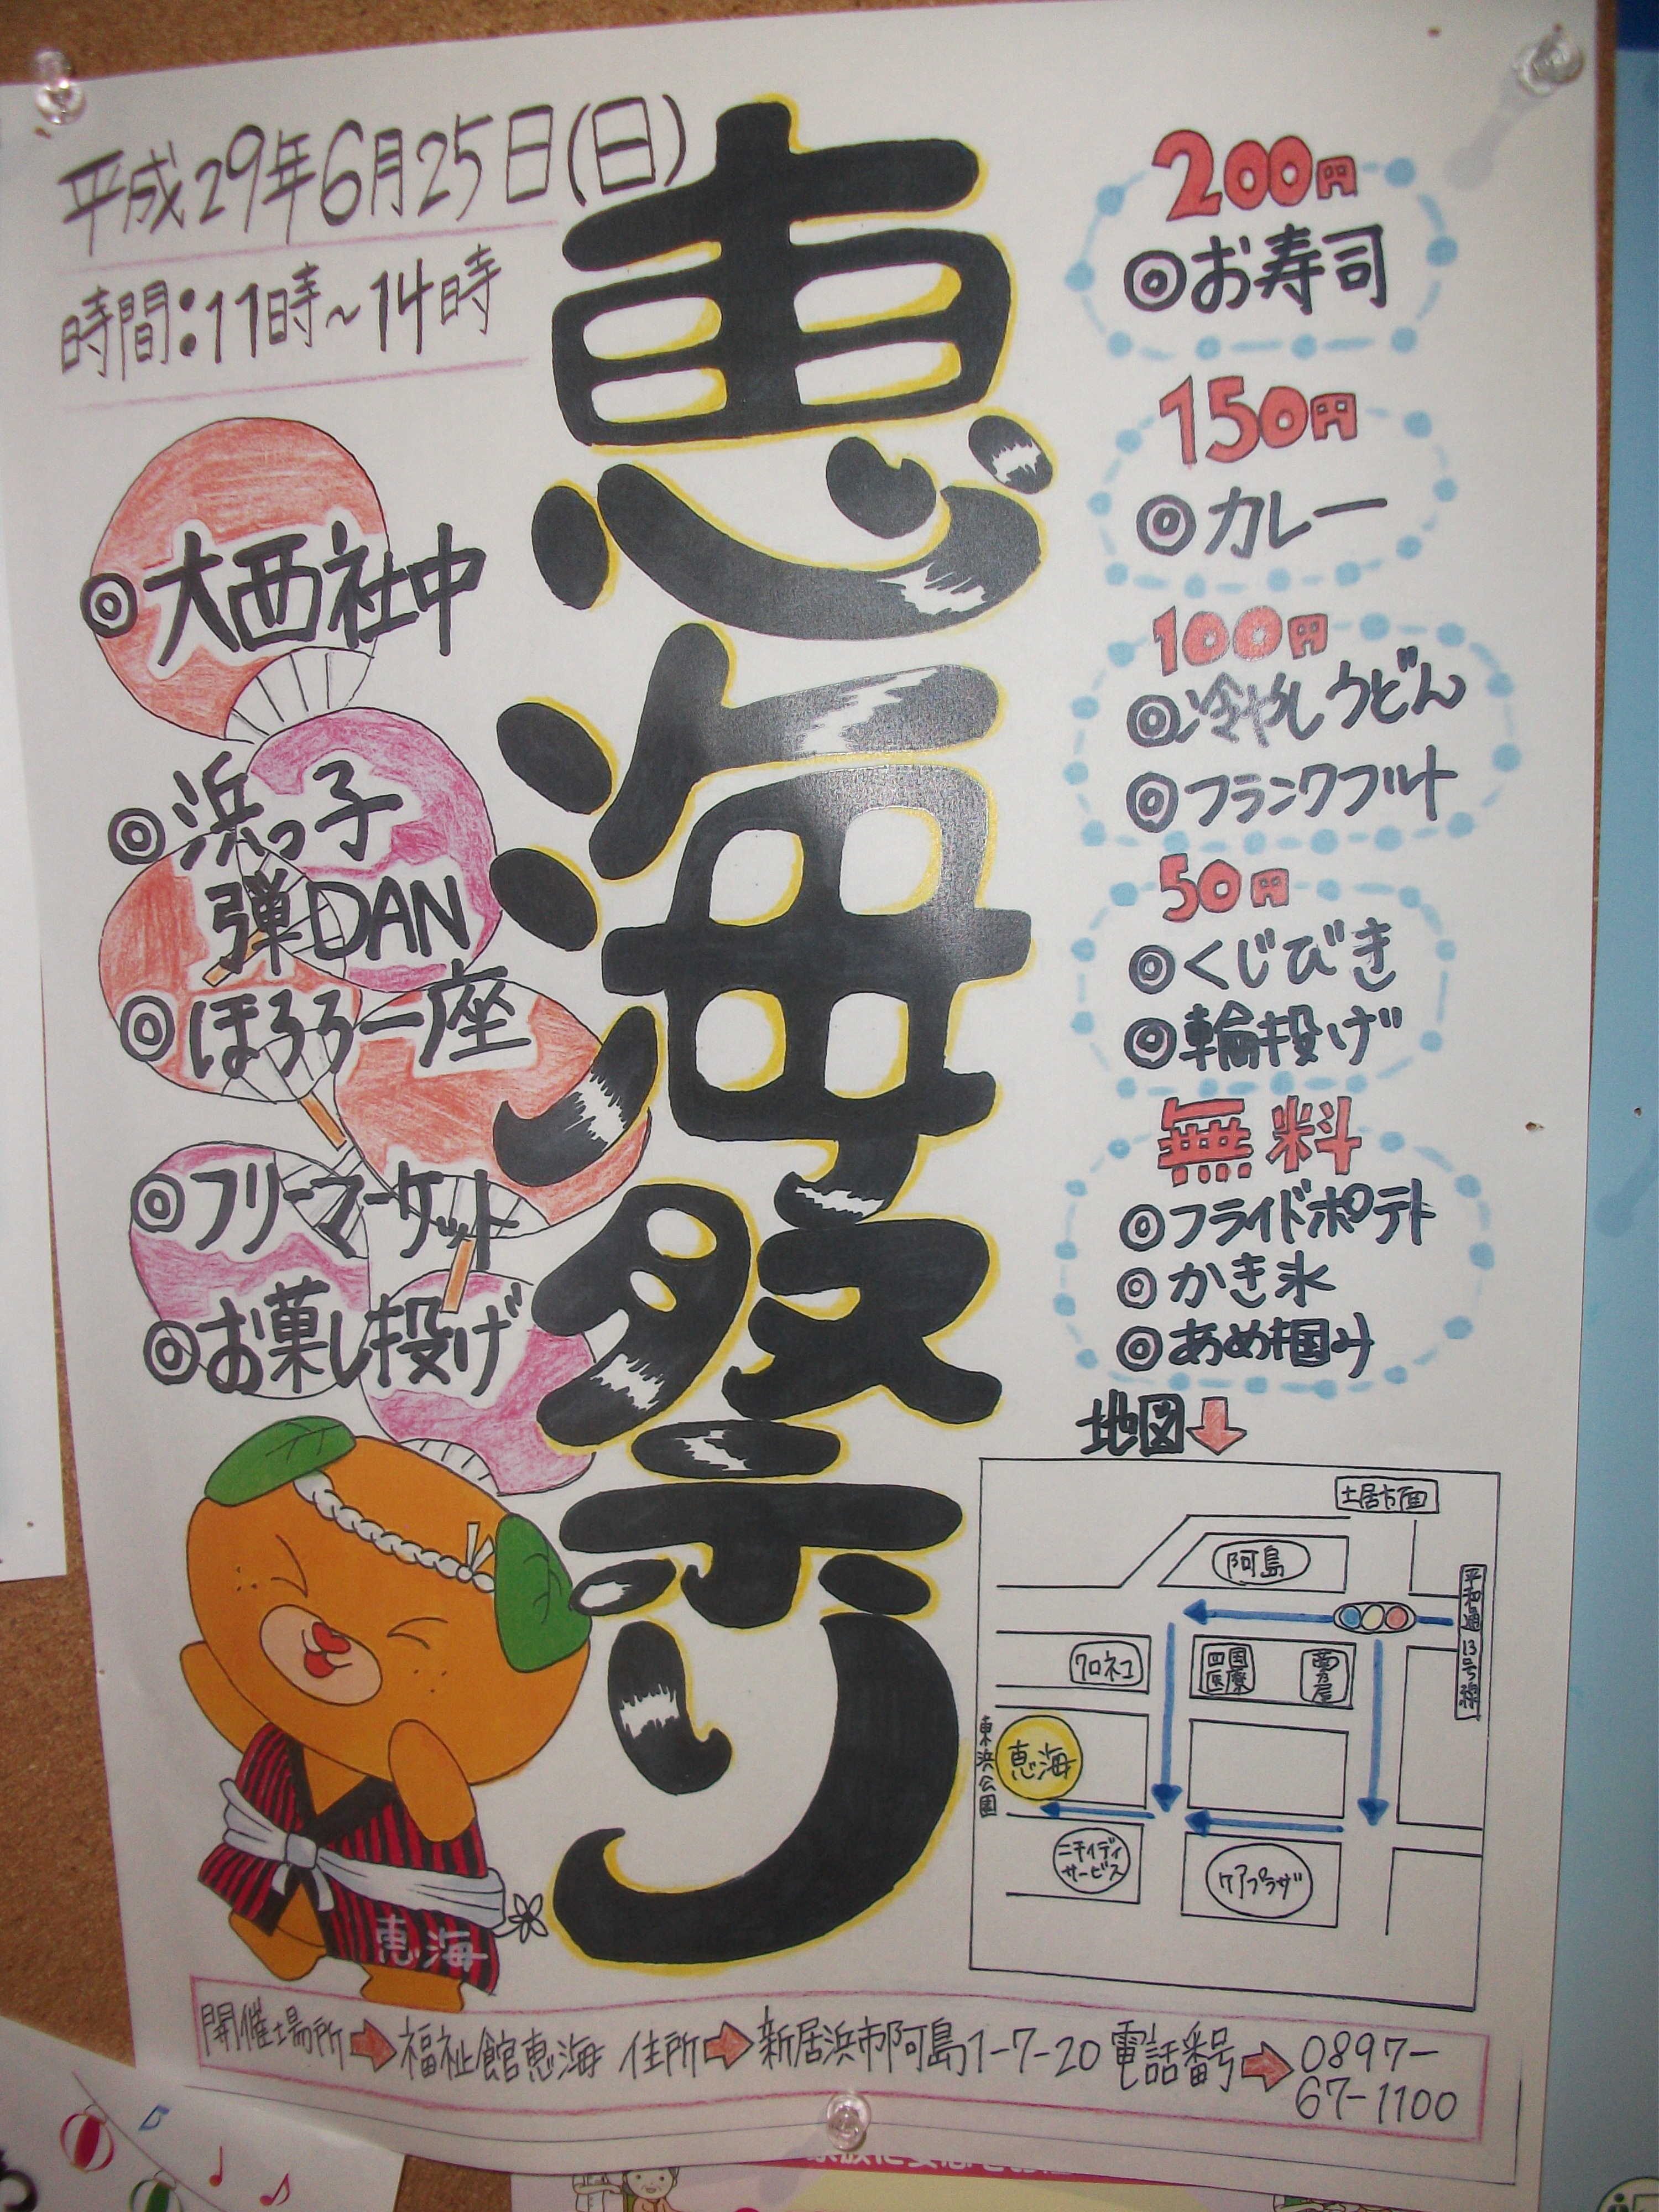 平成29年6月25日(日)
時間:11時~14時
恵海祭り
◎大西社中
◎浜っ子
弾DAN
◎ほろろ一座
◎フリーマーケット
◎お菓し投げ
200円
◎お寿司
150円
◎カレー
100円
◎冷やしうどん
◎フランクフルト
50円
◎くじびき
◎輪投げ
無料
◎フライドポテト
◎かき氷
◎あめ掴み
地図
土居方面
阿島
平和通13号線
クロネコ
四国医療
東浜公園
恵海
ニチイデイ
サービス
ケアプラザ
恵海
開催場所 福祉館恵海 住所 新居浜市阿島1-7-20 電話番号 0897-
67-1100